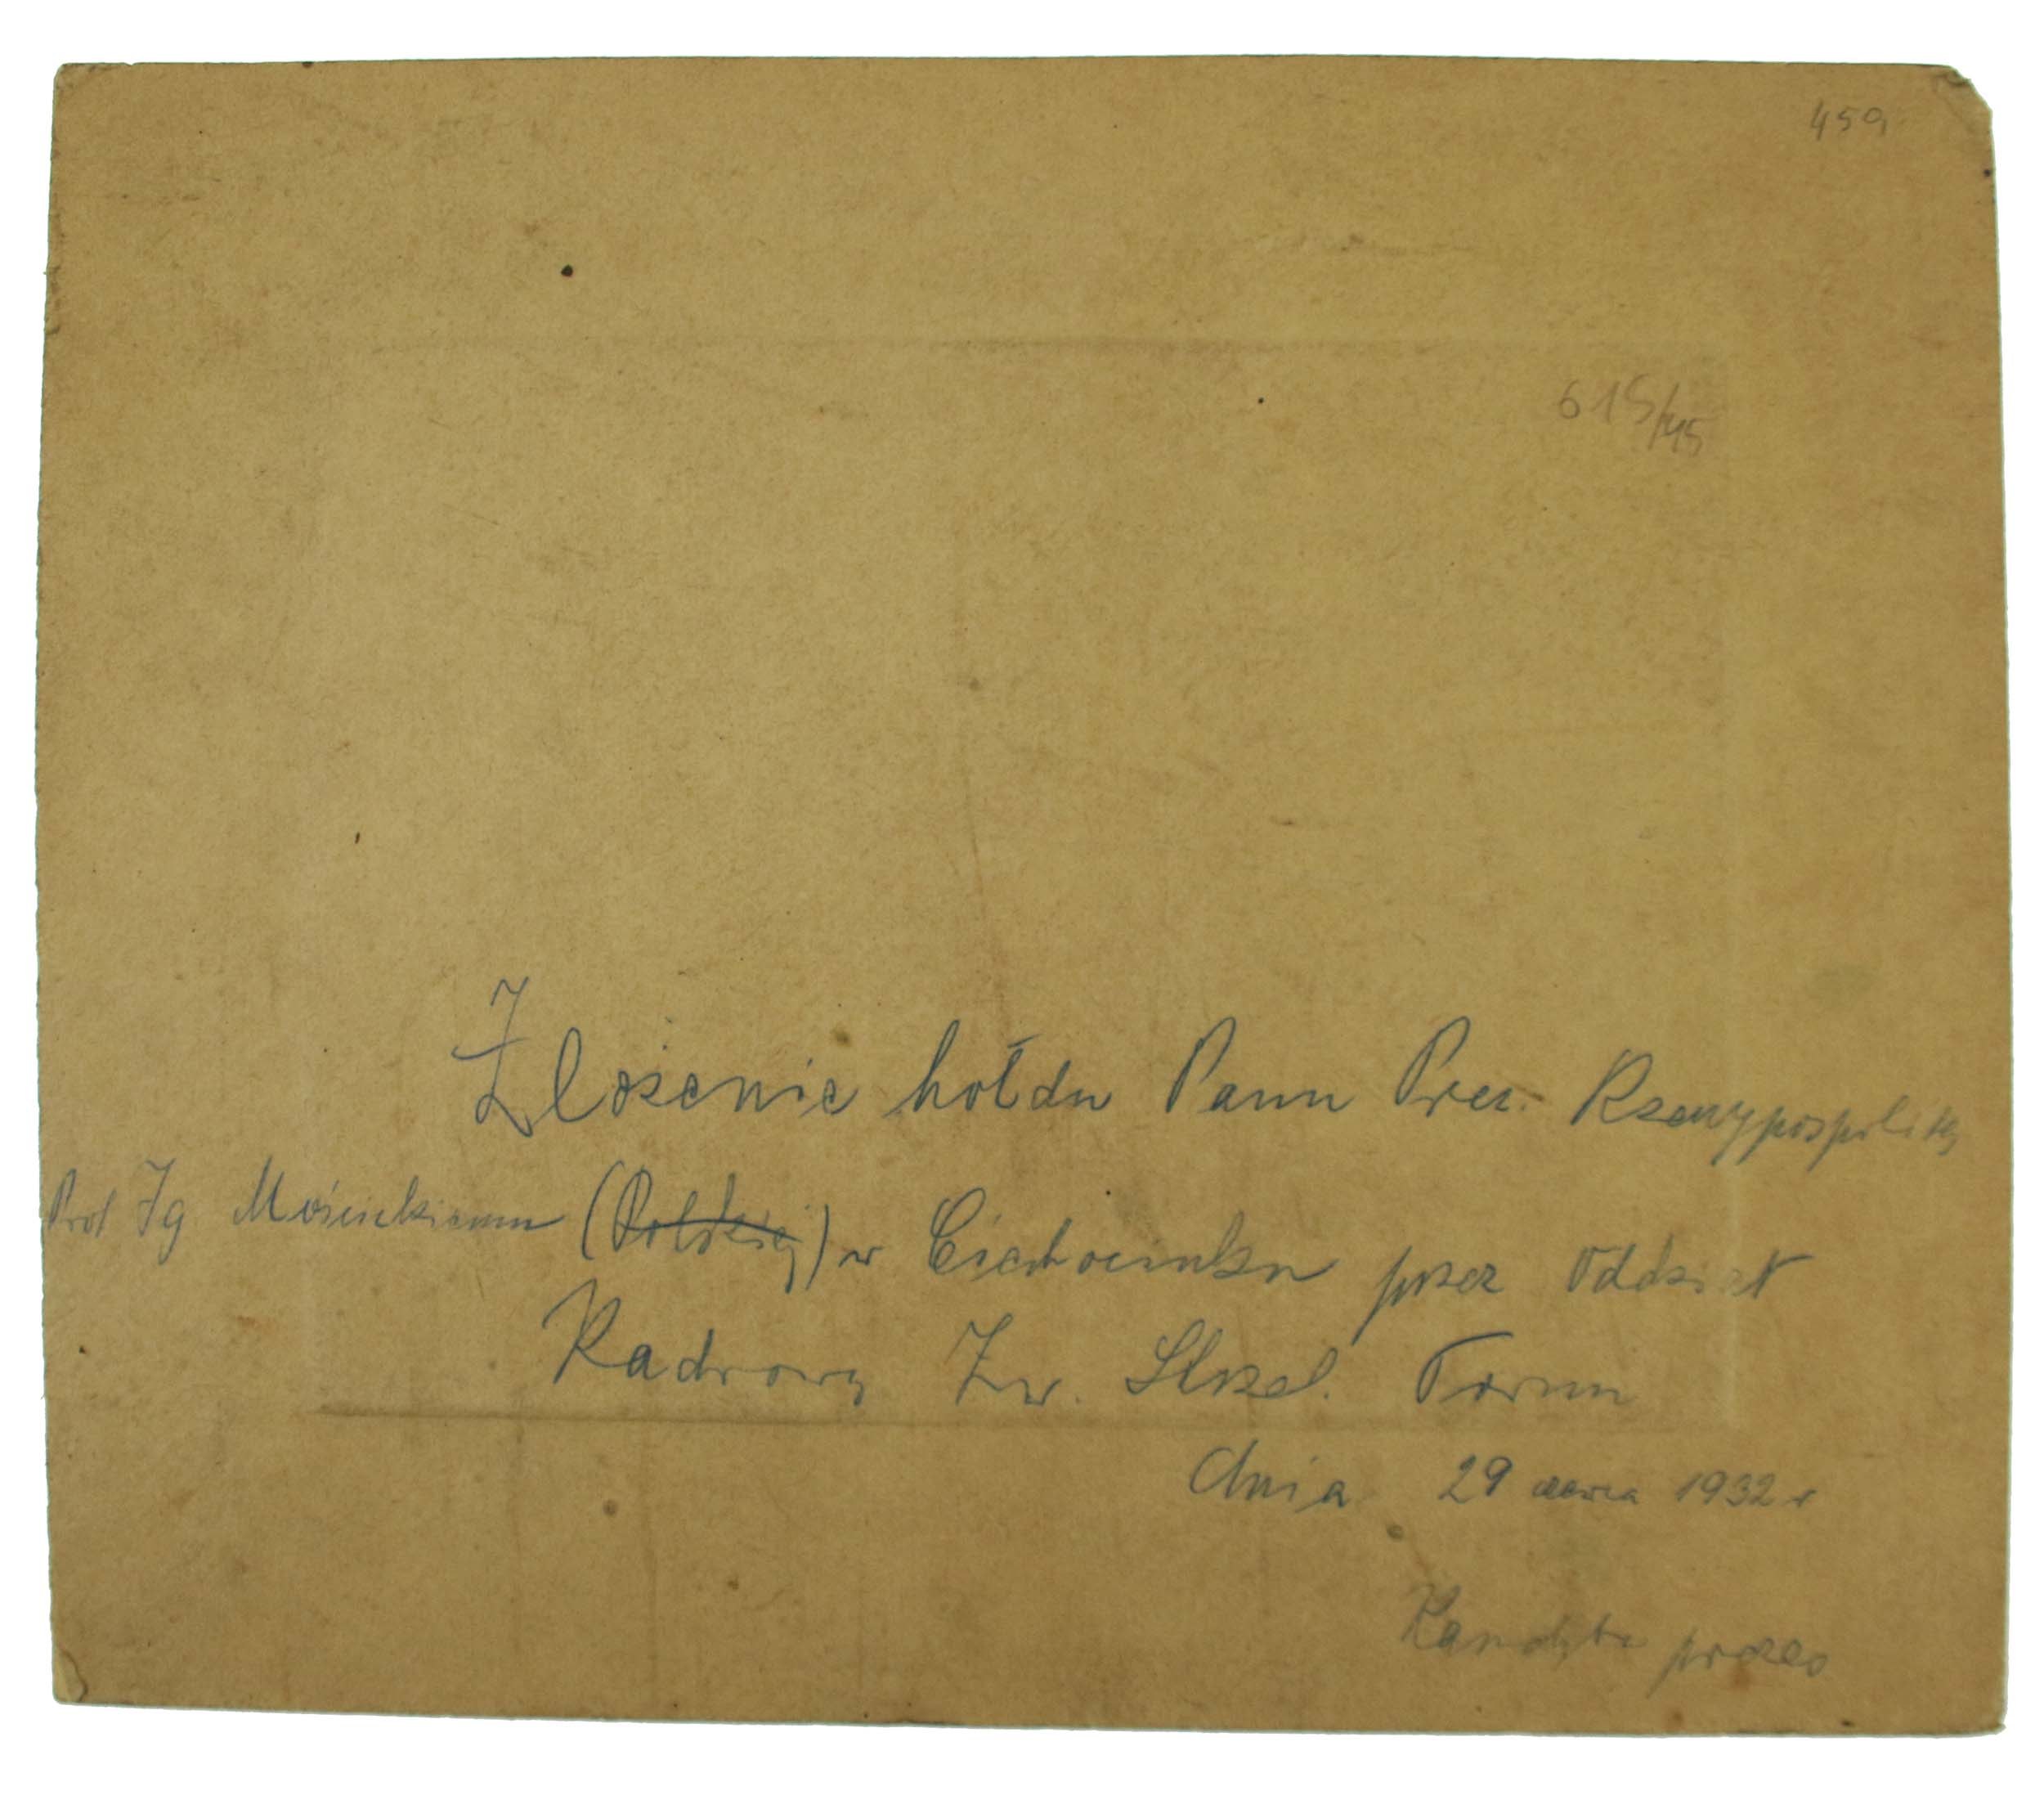 459
615/45
Złożenie hołdu Panu Prez. Rzeczypospolitej
Prof Ig. Mościckiemu (Polskiej) w Ciechocinku przez Oddział
Kadrowy Zw. Strzel. Toruń
dnia 29 czerwca 1932 r
prezes